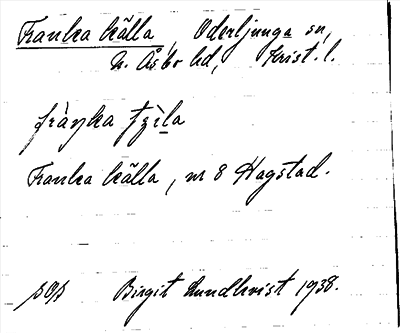 Franka källa, Oderljunga sn,
N. Åsbo hd, Krist. l.
fràŋka tʒìla
Franka källa, nr 8 Hagstad.
Birgit Lundkvist 1938.